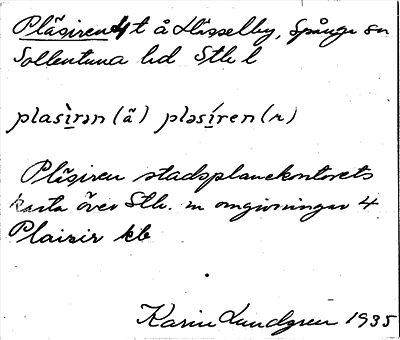 Pläsiren 4 t å Hässelby, Spånga sn
Sollentuna hd Sthlm l
plasìrən (ã) pləsíren (r)
Pläsiren stadsplanekontorets
karta över Sthlm. m omgivningar 4
Plaisir kb
Karin Lundgren 1935